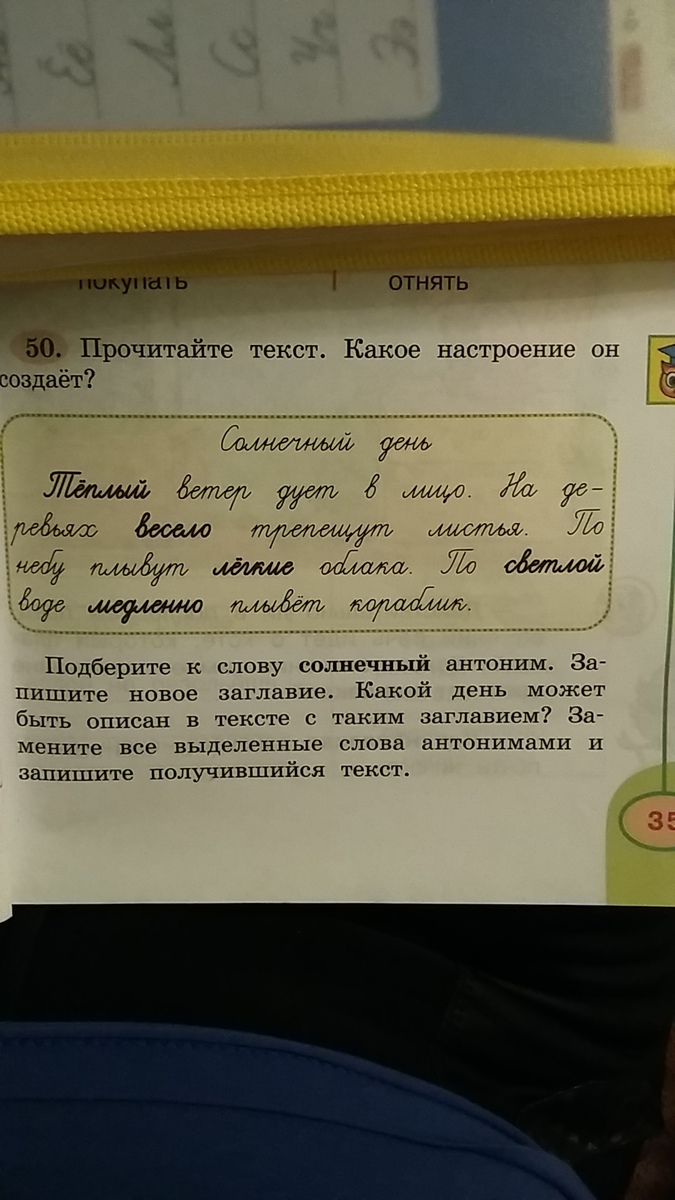 Ее Лл Сс Чч Ээ
покупать отнять
50. Прочитайте текст. Какое настроение он
создаёт?
Солнечный день
Тёплый ветер дует в лицо. На де-
ревьях весело трепещут листья. По
небу плывут лёгкие облака. По светлой
воде медленно плывёт кораблик.
Подберите к слову солнечный антоним. За-
пишите новое заглавие. Какой день может
быть описан в тексте с таким заглавием? За-
мените все выделенные слова антонимами и
запишите получившийся текст.
35